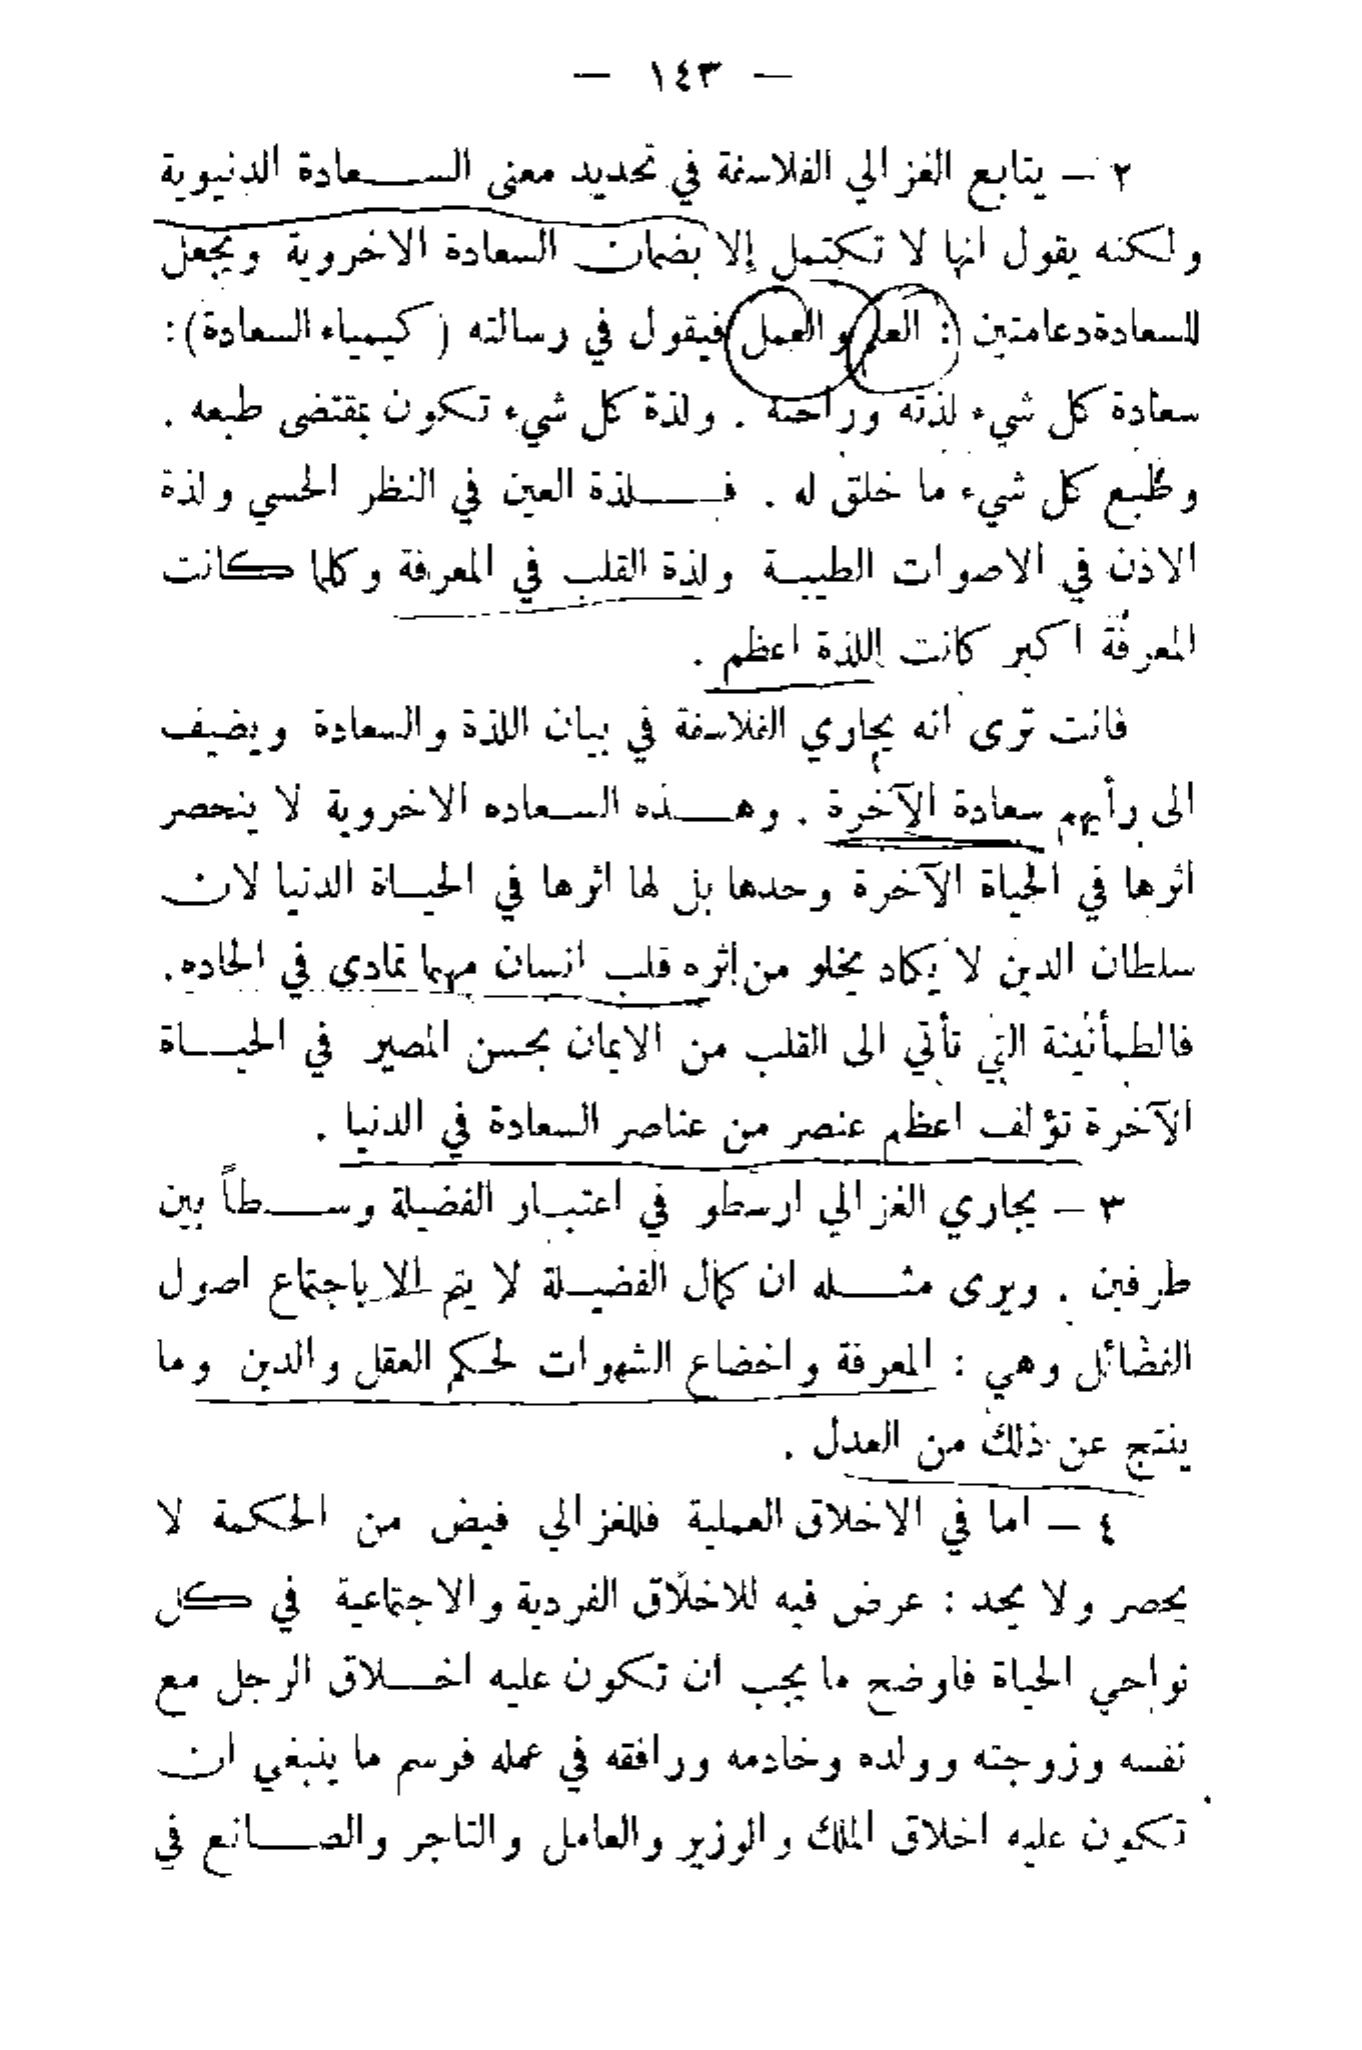 — ١٤٣ —
٢ — يتابع الغزالي الفلاسفة في تحديد معنى الســعادة الدنيوية
ولكنه يقول انها لا تكتمل إلا بضمان السعادة الاخروية ويجعل
للسعادة دعامتين : العلم والعمل فيقول في رسالته (كيمياء السعادة):
سعادة كل شيء لذته وراحته . ولذة كل شيء تكون بمقتضى طبعه .
وطبع كل شيء ما خلق له . فــلذة العين في النظر الحسي ولذة
الاذن في الاصوات الطيبة ولذة القلب في المعرفة وكلما كانت
المعرفة اكبر كانت اللذة اعظم .
فانت ترى انه يجاري الفلاسفة في بيان اللذة والسعادة ويضيف
الى رأيهم سعادة الآخرة . وهــذه السعاده الاخروية لا ينحصر
اثرها في الحياة الآخرة وحدها بل لها اثرها في الحيــاة الدنيا لان
سلطان الدين لا يكاد يخلو من إثره قلب انسان مهما تمادى في الحاده.
فالطمأنينة التي تأتي الى القلب من الايمان بحسن المصير في الحيــاة
الآخرة تؤلف اعظم عنصر من عناصر السعادة في الدنيا .
٣ — يجاري الغزالي ارسطو في اعتبــار الفضيلة وســطاً بين
طرفين . ويرى مثــله ان كمال الفضيــلة لا يتم الا باجتماع اصول
الفضائل وهي : المعرفة واخضاع الشهوات لحكم العقل والدين وما
ينتج عن ذلك من العدل .
٤ — اما في الاخلاق العملية فللغزالي فيض من الحكمة لا
يحصر ولا يحد : عرض فيه للاخلاق الفردية والاجتماعية في كل
نواحي الحياة فاوضح ما يجب ان تكون عليه اخــلاق الرجل مع
نفسه وزوجته وولده وخادمه ورافقه في عمله فرسم ما ينبغي ان
تكون عليه اخلاق الملك والوزير والعامل والتاجر والصــانع في